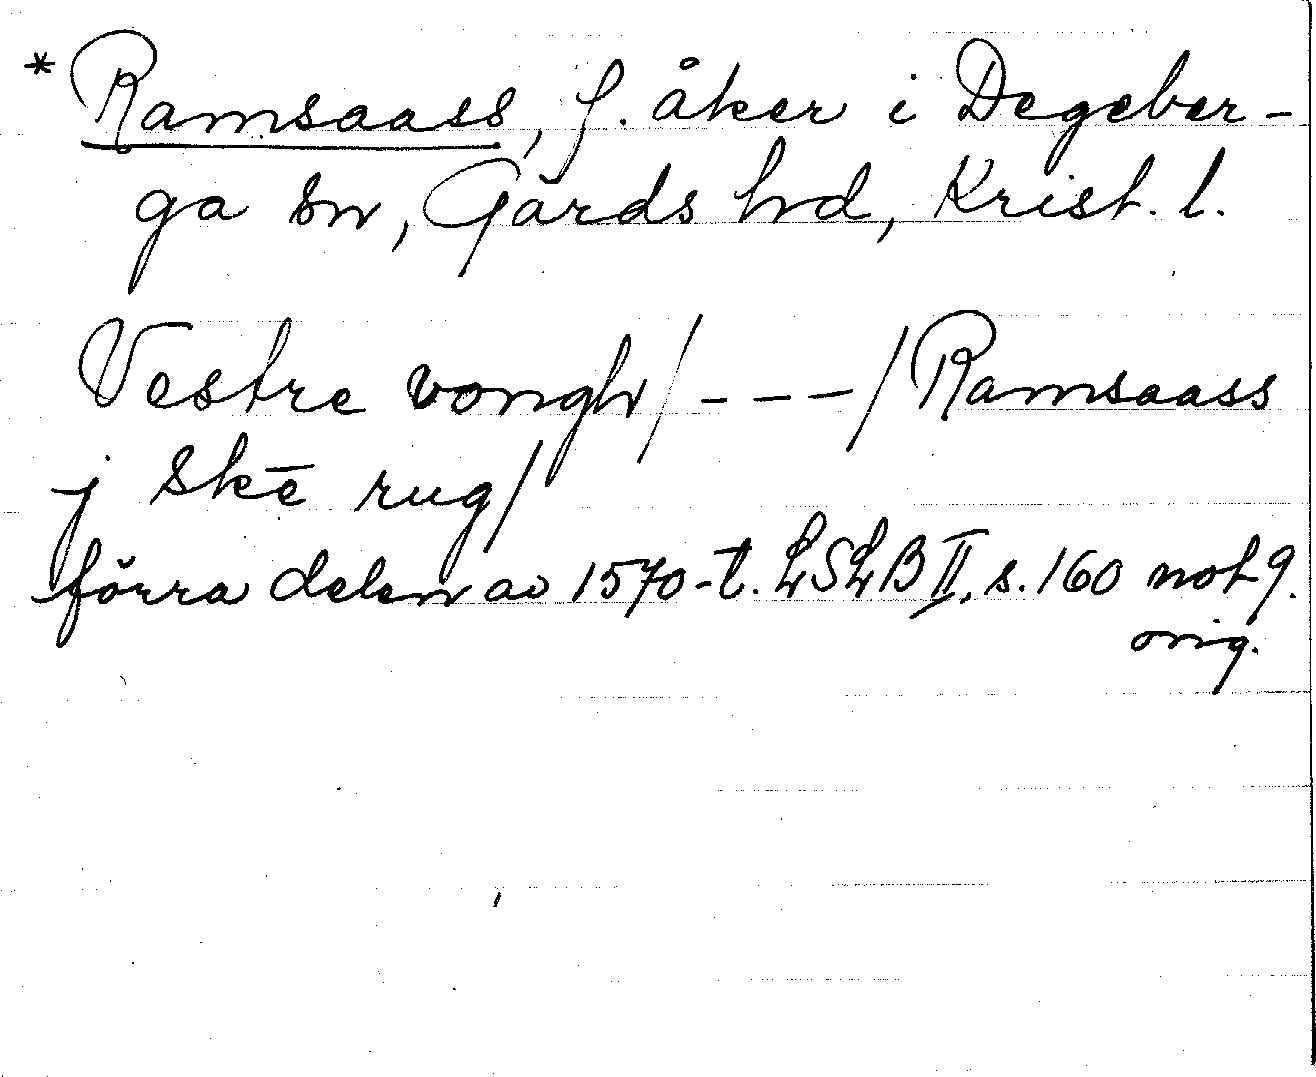 * Ramsaass, f. åker i Degeber-
ga sn, Gärds hd, Krist. l.
Vestre vongh/ - - - / Ramsaass
j skē rug/
förra delen av 1570-t. LSLB II, s. 160 not 9.
orig.